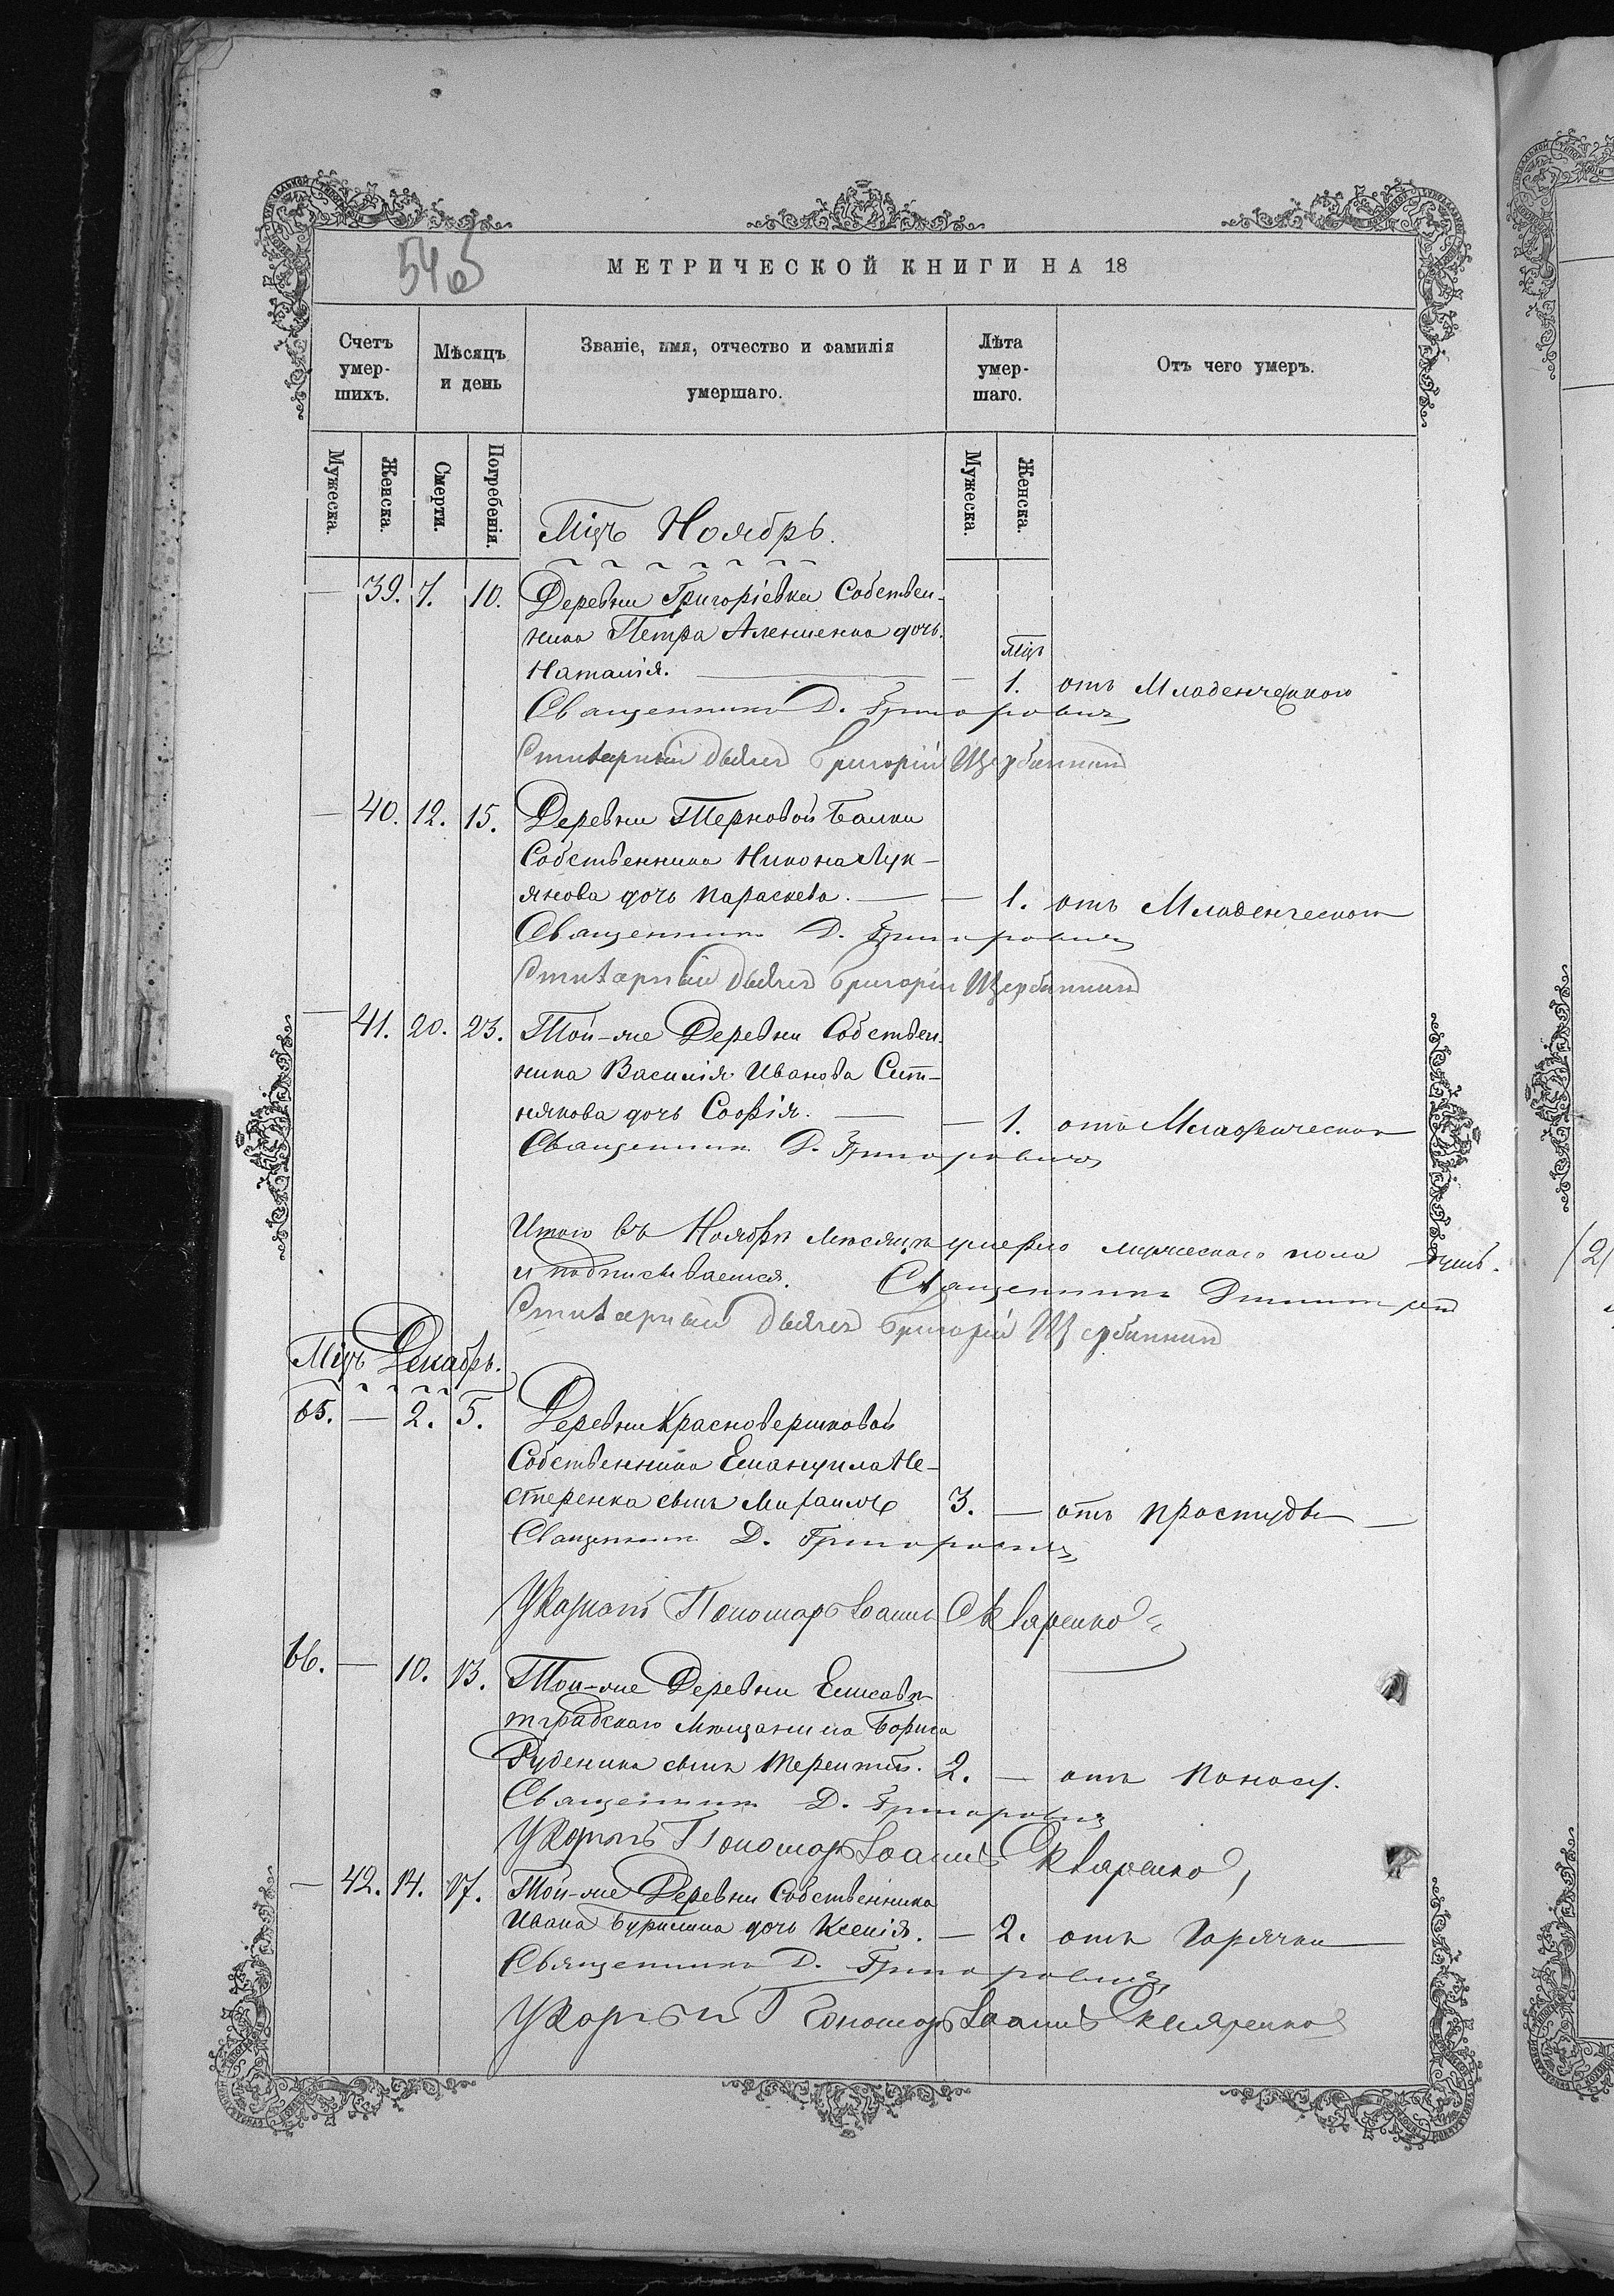 546
МЕТРИЧЕСКОЙ КНИГИ НА 18
Счетъ умер-шихъ.
Мѣсяцъ и день
Званіе, имя, отчество и фамилія умершаго.
Лѣта умер-шаго.
Отъ чего умеръ.
Мужеска.
Женска.
Смерти.
Погребенія.
Мужеска.
Женска.
Мцъ Ноябрь.
— 39. 7. 10. Деревни Григоріевки Собствен-
ника Петра Алексиенка дочь
Наталія. — 1. отъ Младенческаго
мцъ
Священникъ Д. Григоровичъ
Стихарный Дьячекъ Григорій Щербинскій
— 40. 12. 15. Деревни Терновой Балки
Собственника Никона Лук-
янова дочь Параскева. — — 1. отъ Младенческой
Священникъ Д. Григоровичъ
Стихарный Дьячекъ Григорій Щербинскій
— 41. 20. 23. Той-же Деревни Собствен-
ника Василія Иванова Сит-
някова дочь Софія. — — 1. отъ Младенческой
Священникъ Д. Григоровичъ
Итого въ Ноябрѣ мѣсяцѣ умерло мужескаго пола
и подписываемся. Священникъ
Стихарный Дьячекъ Григорій Щербинскій
Мцъ Декабрь.
65. — 2. 5. Деревни Красновершковой
Собственника Емануила Не-
стеренка сынъ Михаилъ 3. — отъ простуды —
Священникъ Д. Григоровичъ
Указный Пономарь Іоаннъ Скляренко
66. — 10. 13. Той-же Деревни Елисавет-
тградскаго Мѣщанина Бориса
Руденика сынъ Терентій. 2. — отъ поносу.
Священникъ Д. Григоровичъ
Указный Пономарь Іоаннъ Скляренко
— 42. 14. 17. Той-же Деревни Собственника
Ивана Бурлика дочь Ксенія. — 2. отъ Горячки —
Священникъ Д. Григоровичъ
Указный Пономарь Іоаннъ Скляренко